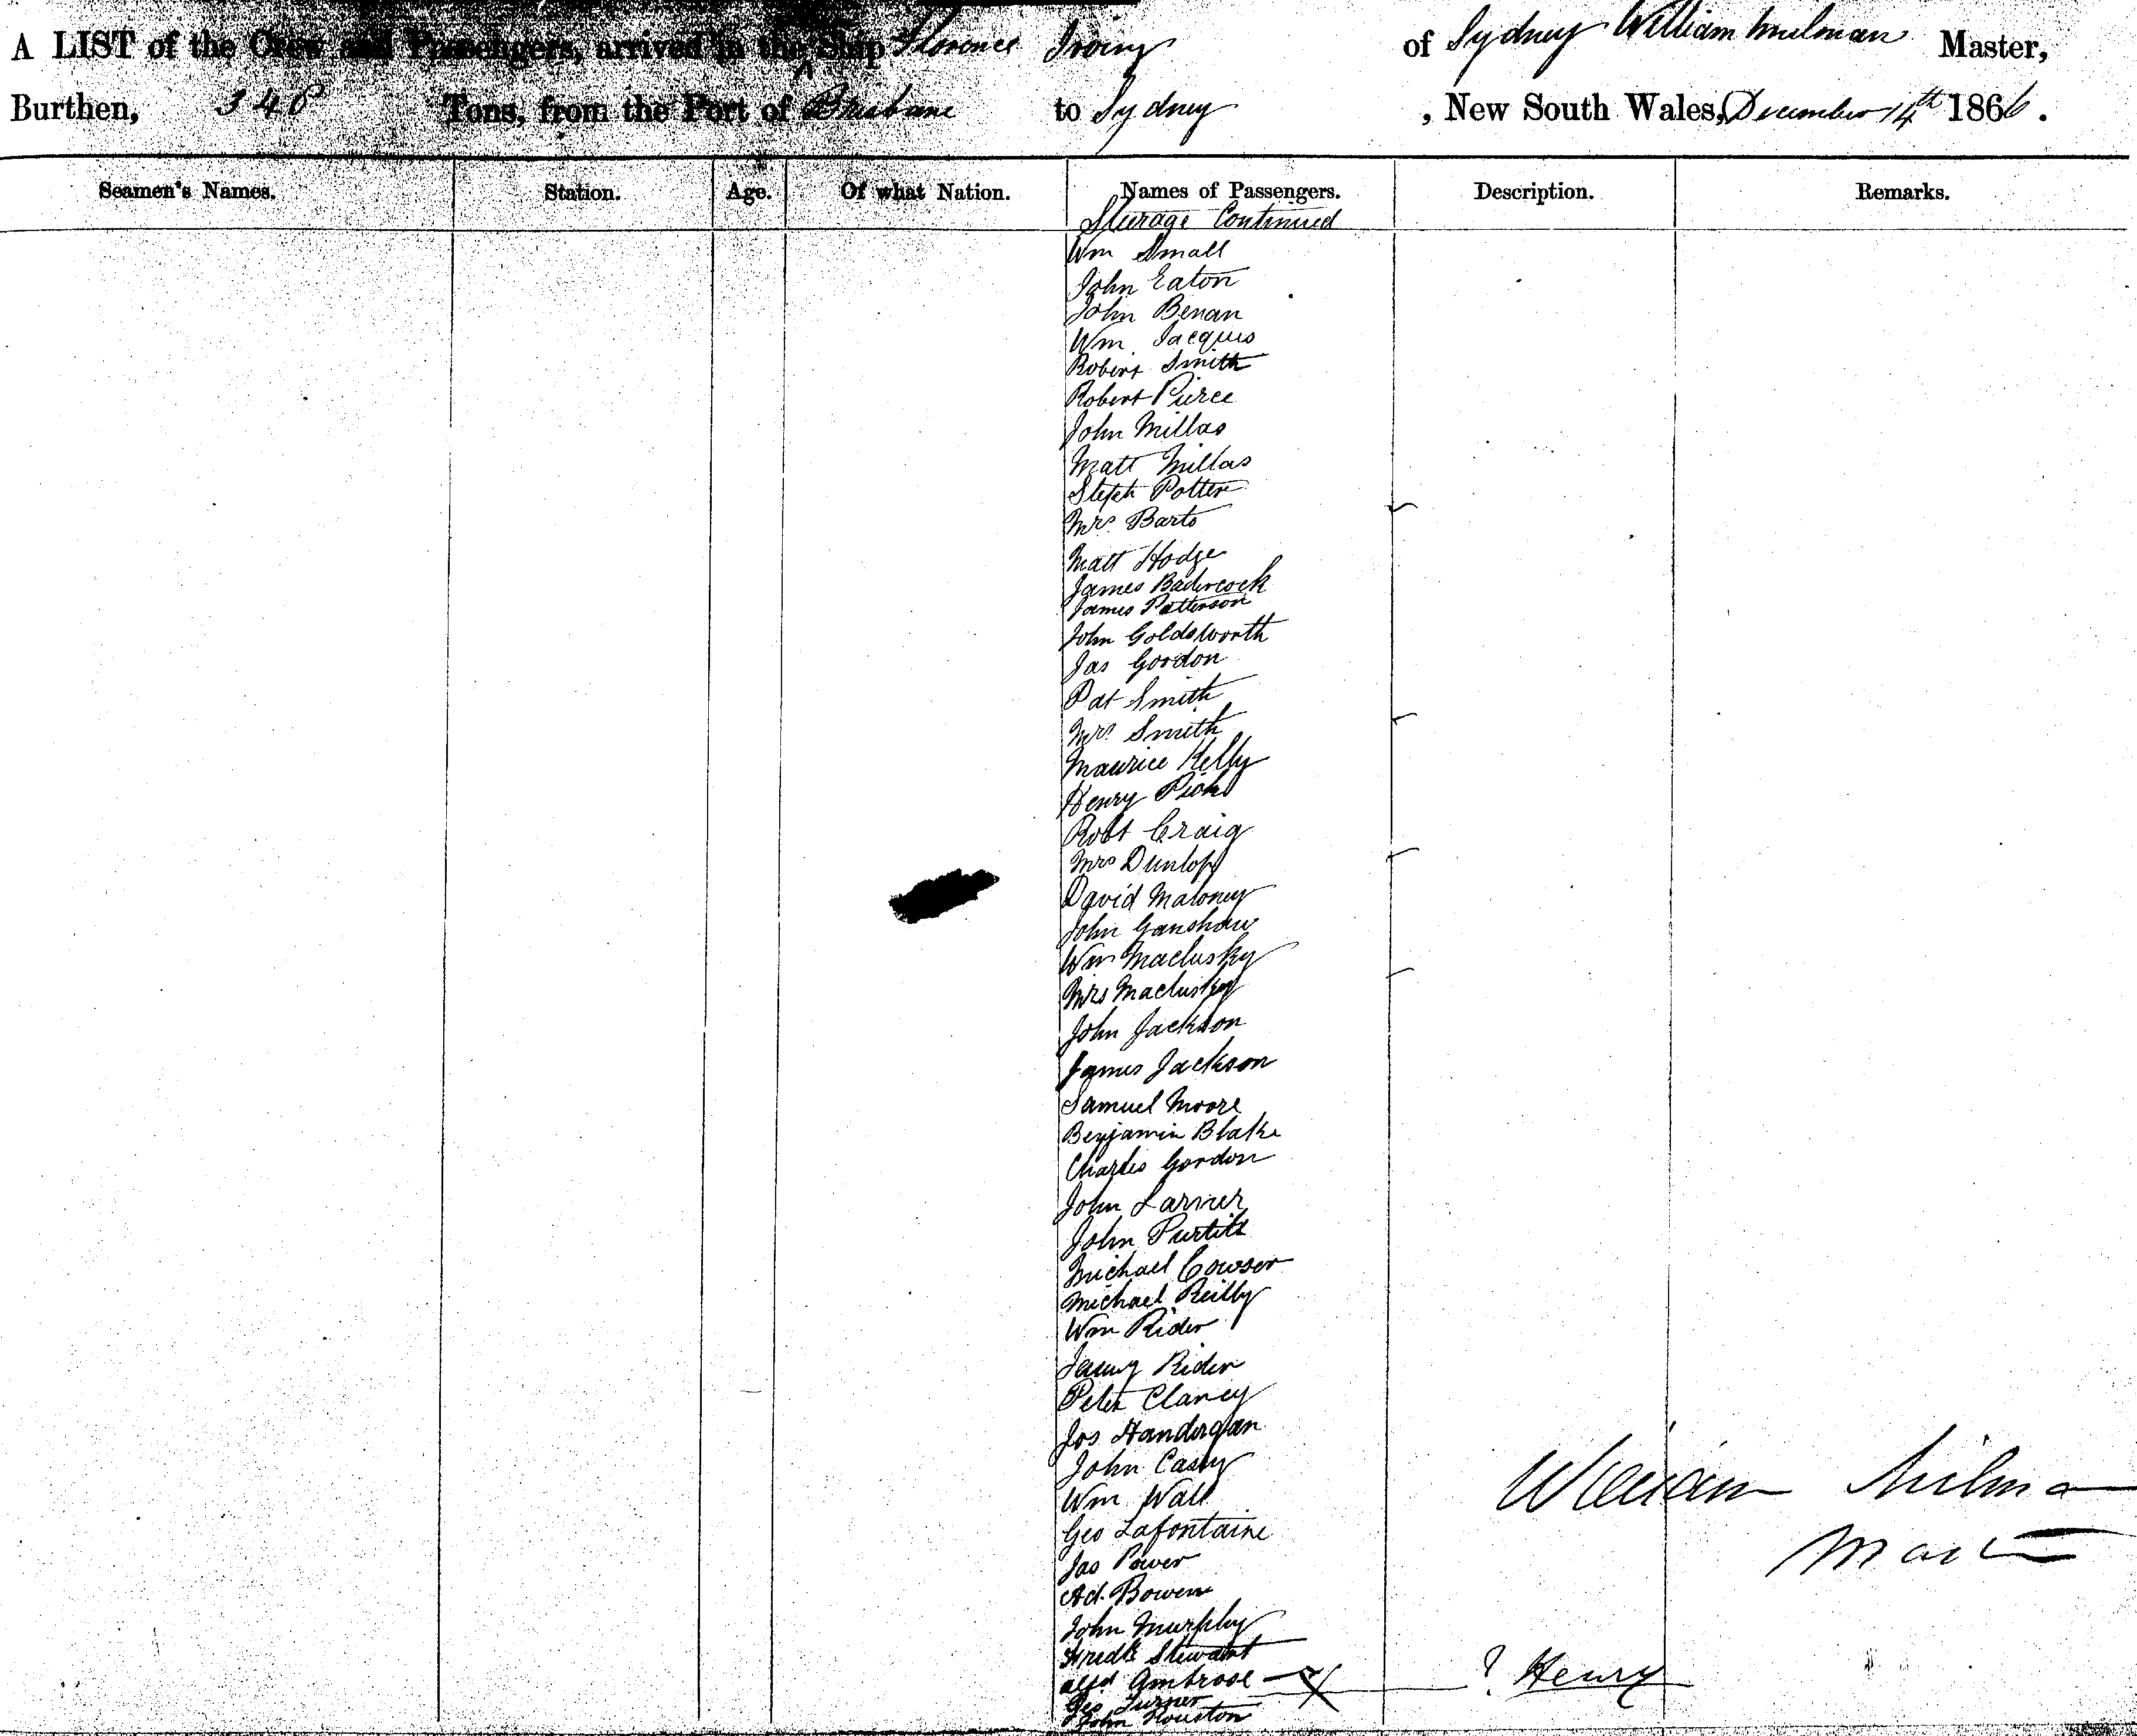 A LIST of the Crew and Passengers, arrived in the Ship Florence Irving of Sydney William Milman Master,
Burthen, 348 Tons, from the Port of Brisbane to Sydney , New South Wales, December 14th 1866.
Seamen's Names. Station. Age. Of what Nation. Names of Passengers. Description. Remarks.
Steerage Continued
Wm Small
John Eaton
John Benan
Wm Jacques
Robert Smith
Robert Pierce
John Millas
Matt Millas
Steph Potter
Mrs Barts
Matt Hodge
James Badercock
James Patterson
John Goldsworth
Jas Gordon
Pat Smith
Mrs Smith
Maurice Kelly
Henry
Robt Craig
Mrs Dunlop
David Maloney
John Ganshaw
Wm Maclusky
Mrs Maclusky
John Jackson
James Jackson
Samuel Moore
Benjamin Blake
Charles Gordon
John Larner
John Purtill
Michael Cowser
Michael Reilly
Wm Rider
Rider
Peter Clancy
Jos Handergan
John Casey
Wm Wall
Geo Lafontaine
Jas Power
Ad. Bowen
John Murphy
Fredk Stewart
Alfd Ambrose X ? Henry
Geo Turner
John Houston
William Milman
Master